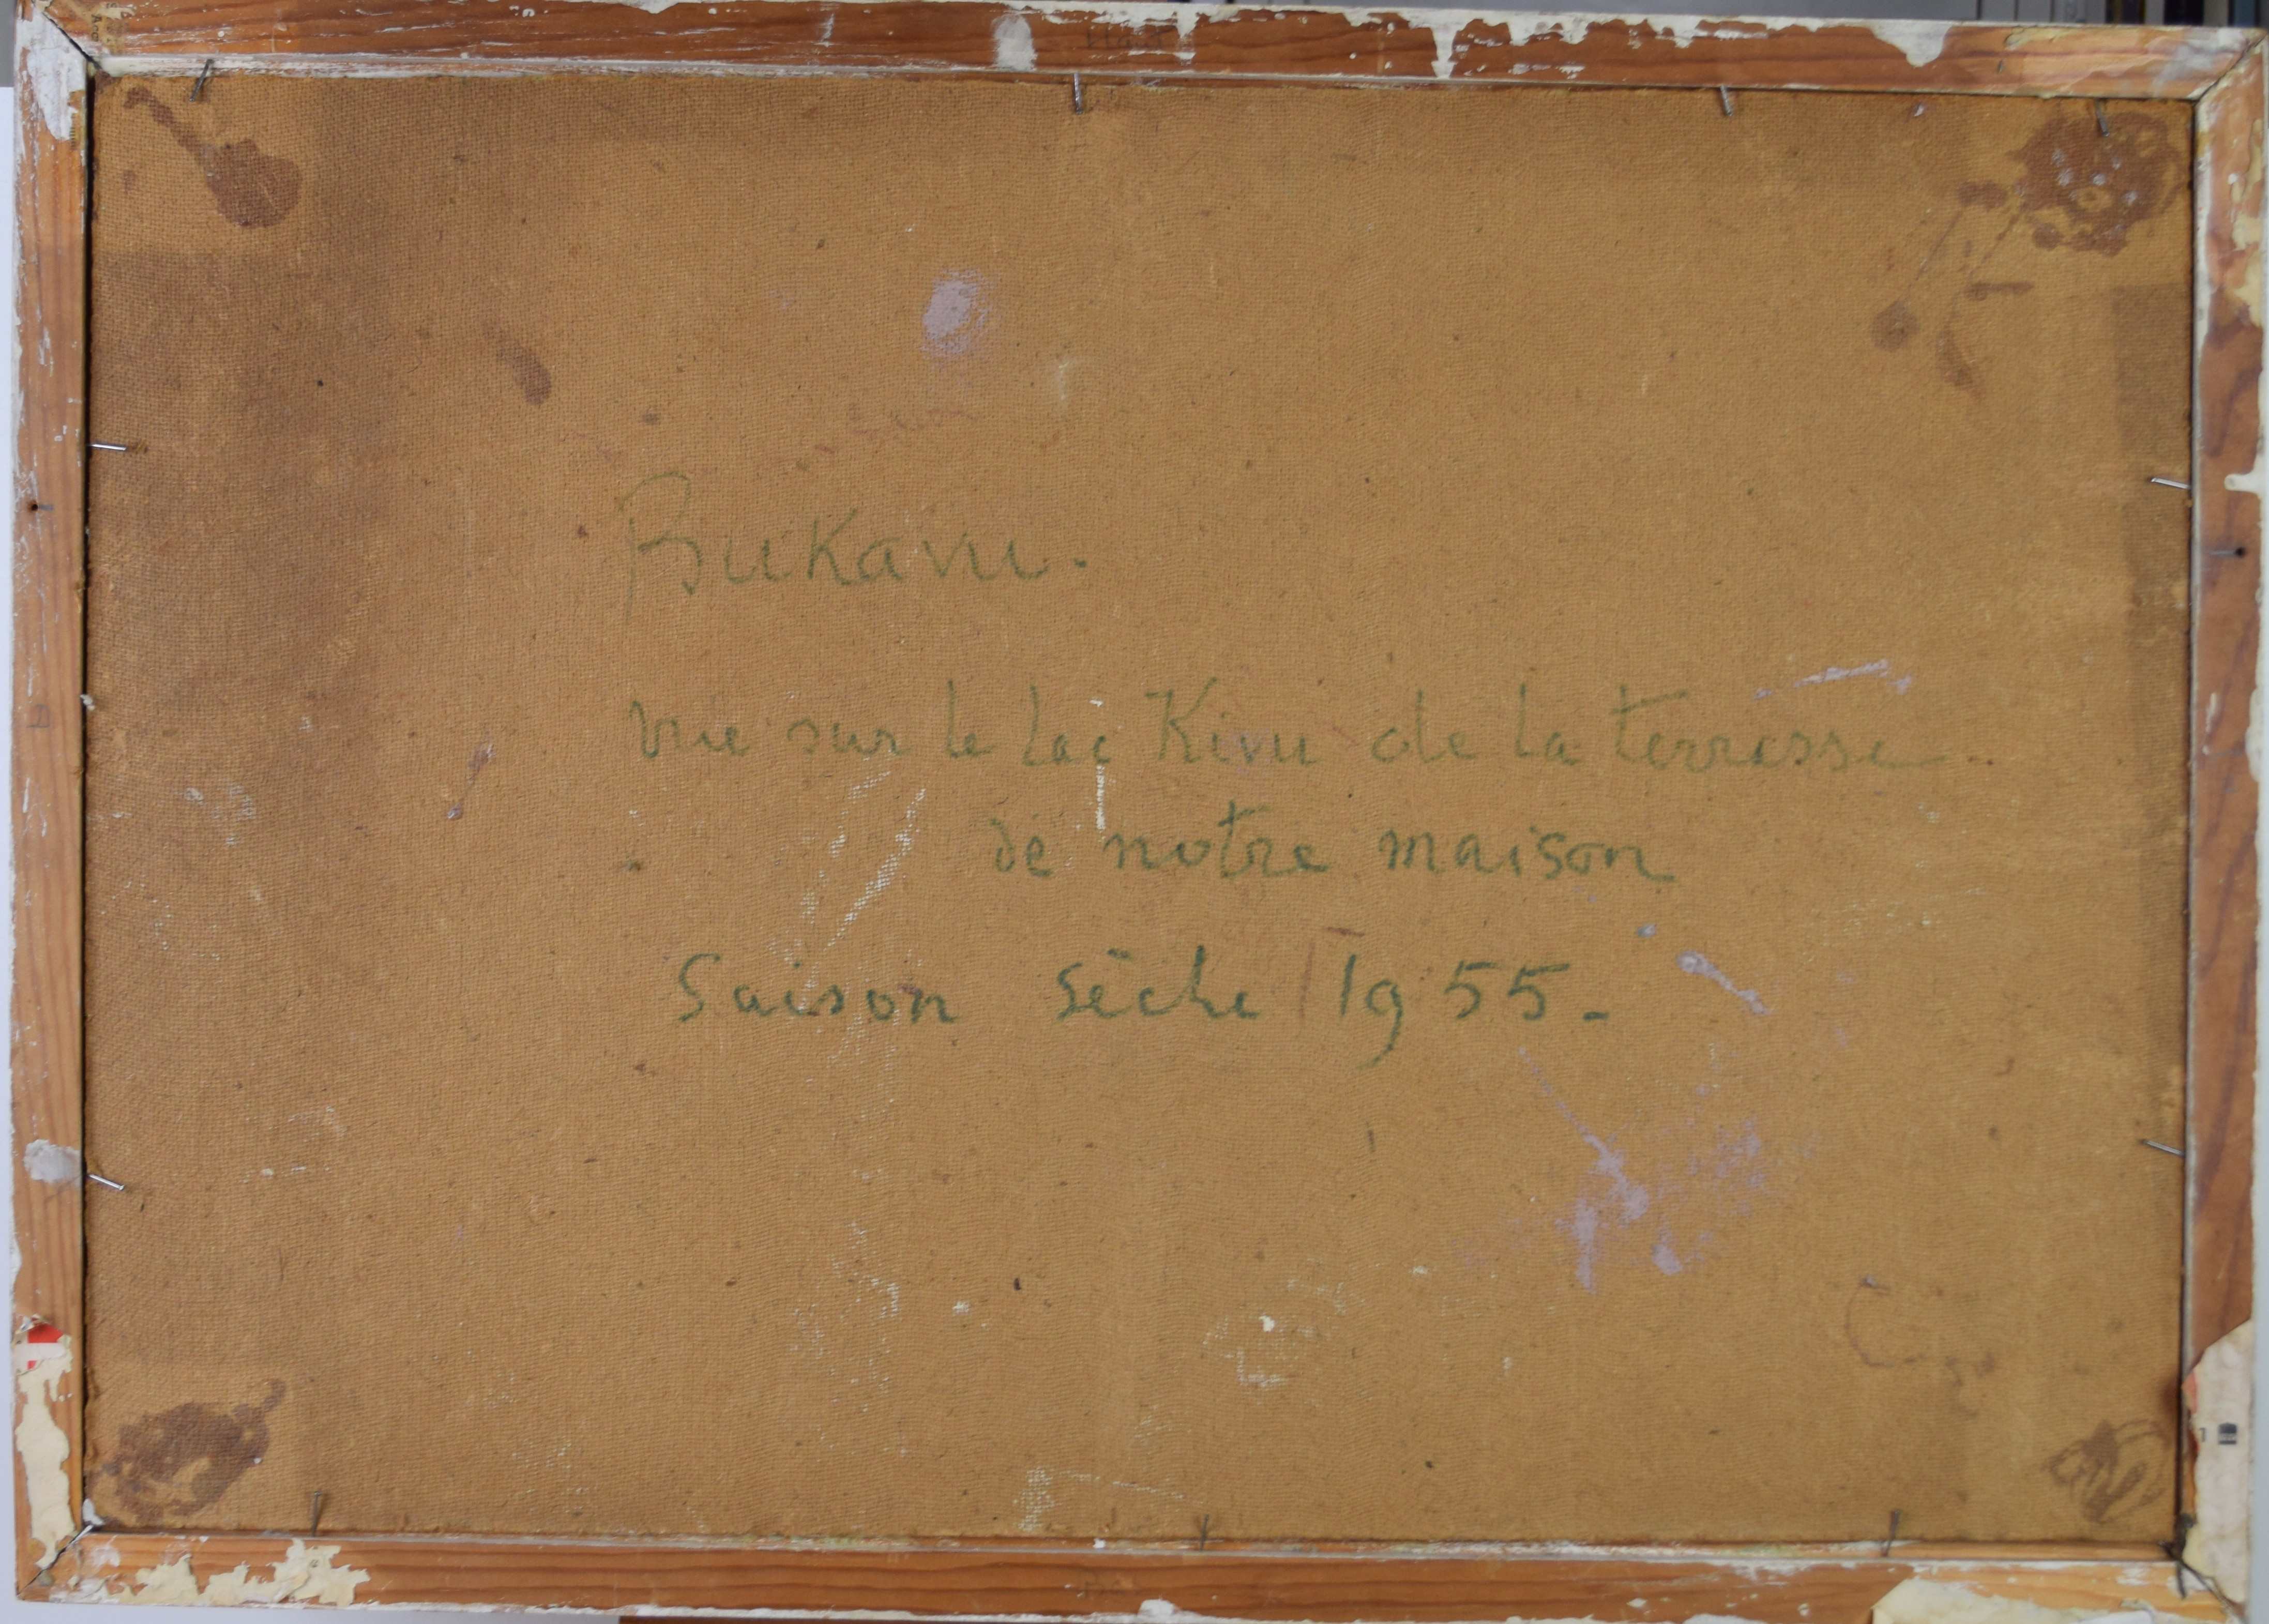 Bukavu.
vue sur le lac Kivu de la terrasse
de notre maison
Saison sèche 1955.